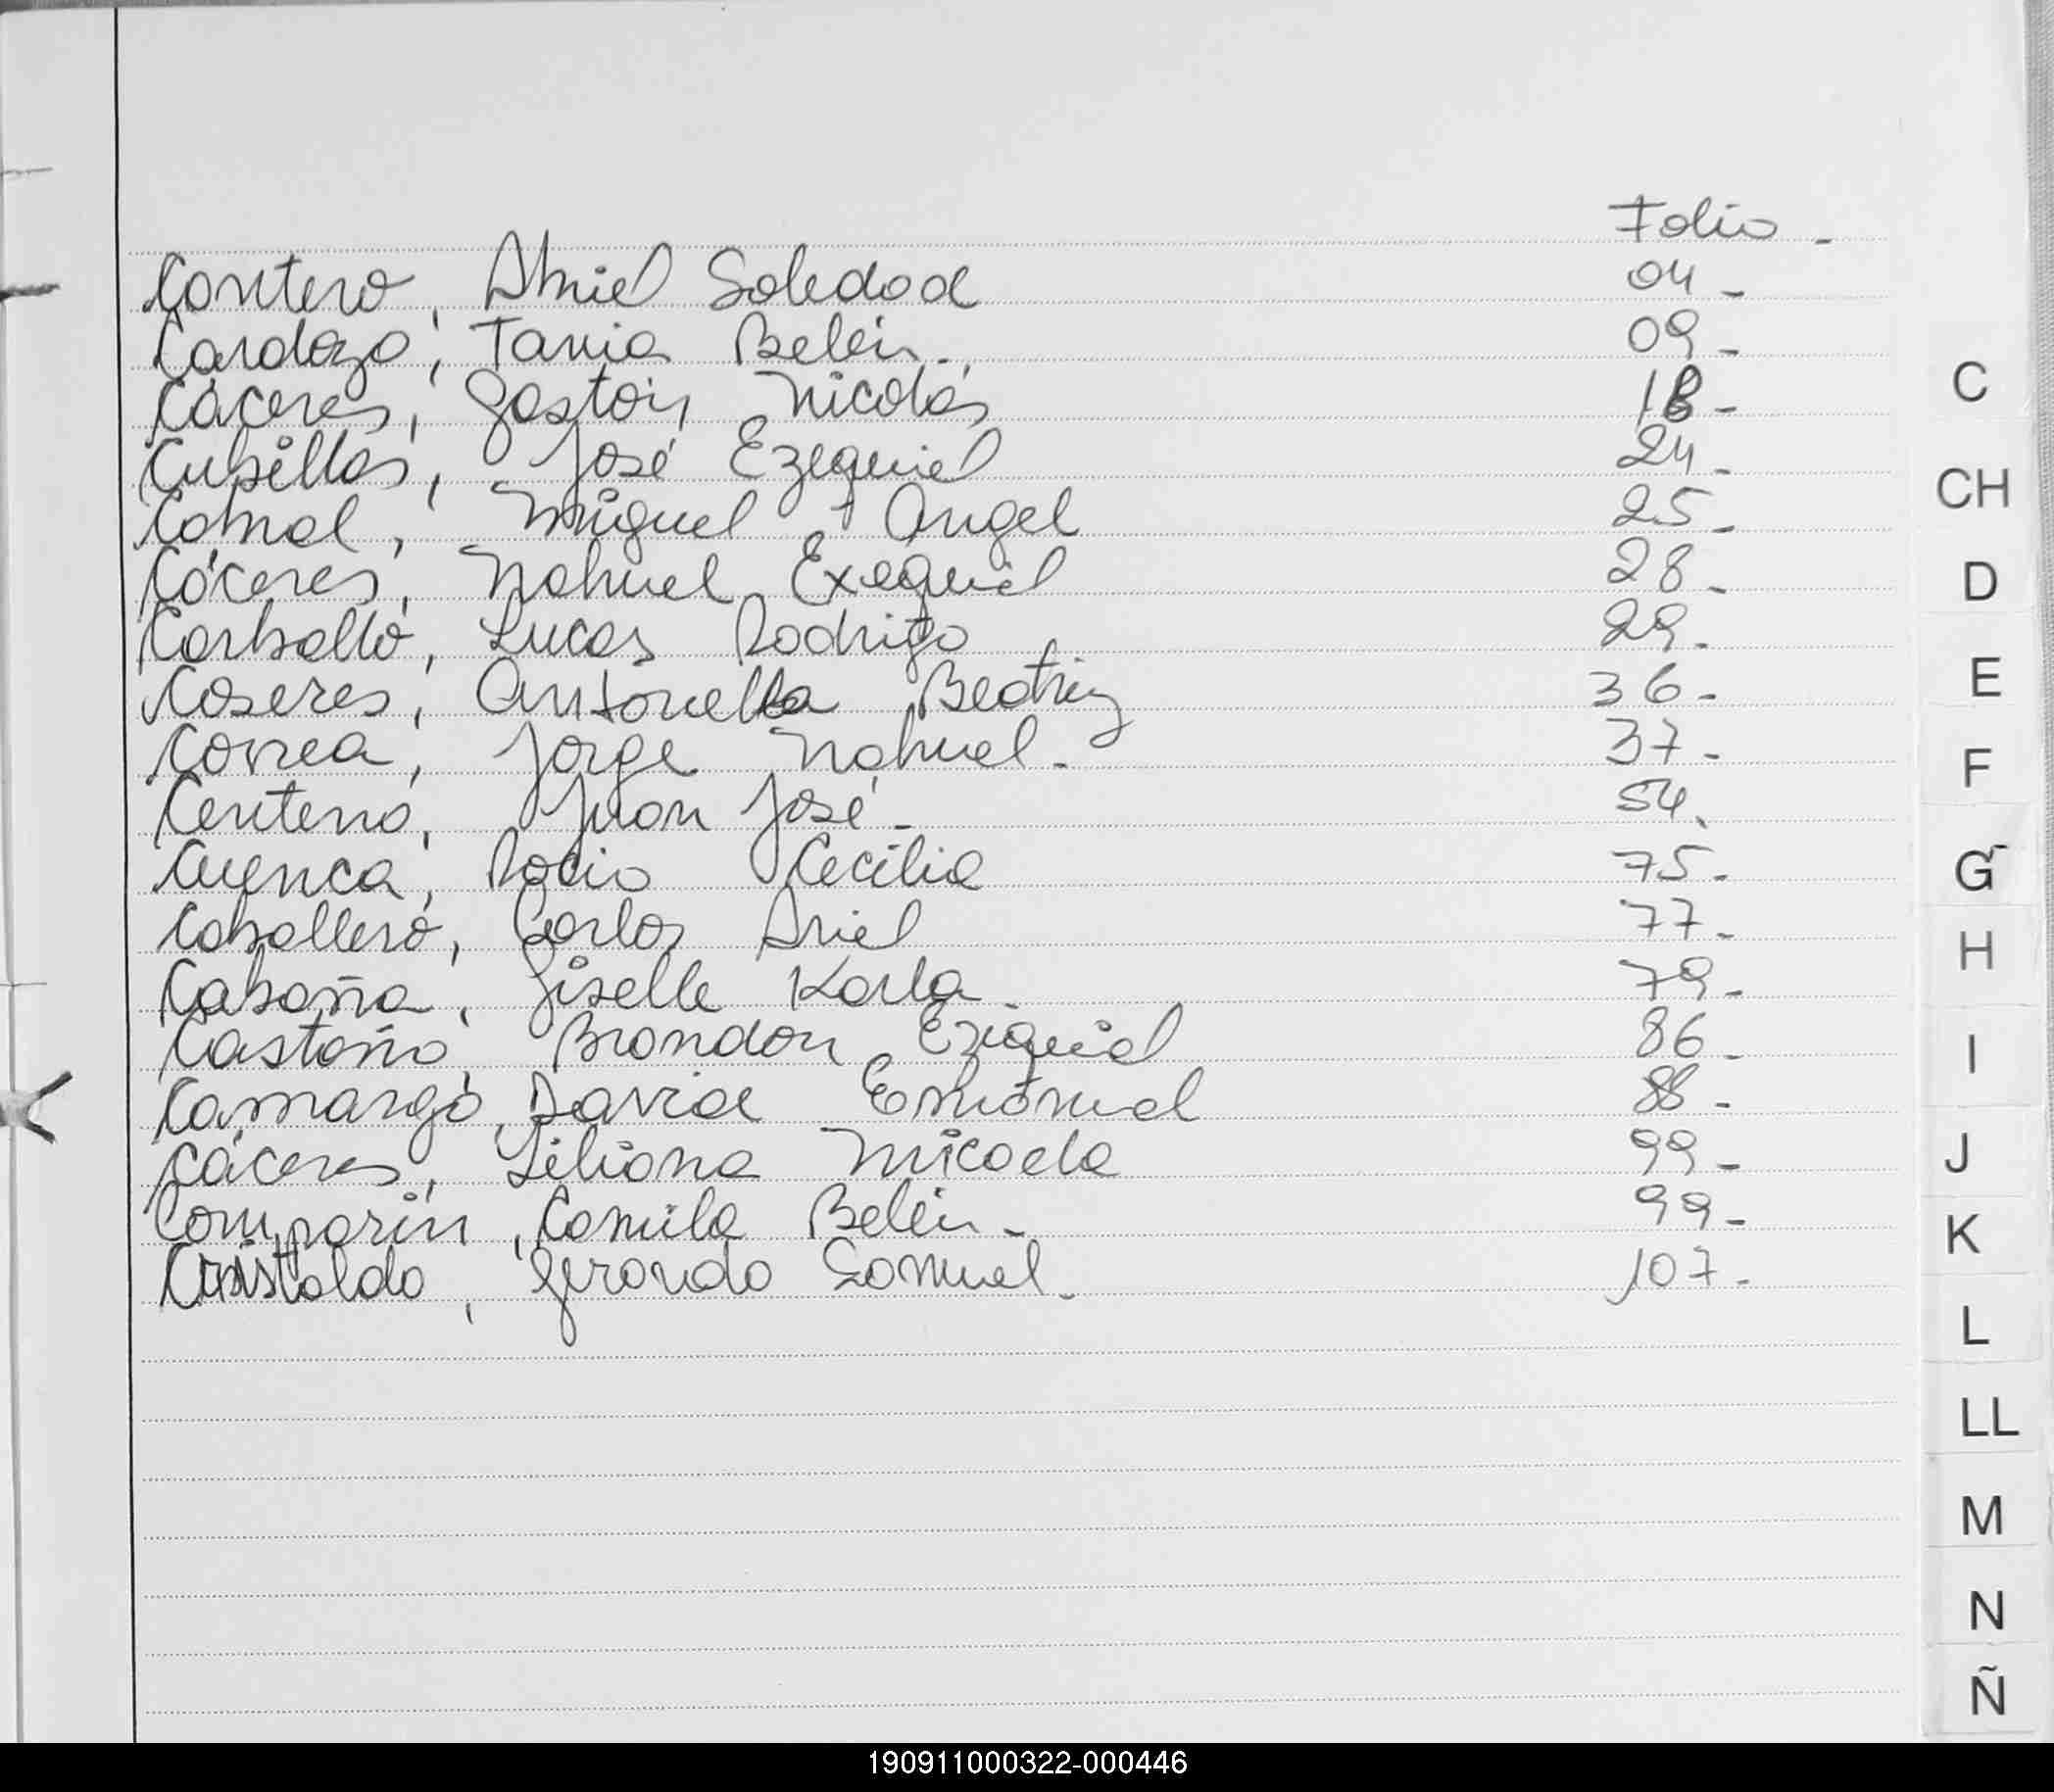 Folio -
Cantero, Abriel Soledad 04 -
Cardozo, Tania Belén - 09 -
Cáceres, Gastón Nicolás 18 -
Cubillas, José Ezequiel 24 -
Cabral, Miguel Angel 25 -
Cáceres, Nahuel Exequiel 28 -
Carballo, Lucas Rodrigo 29 -
Caseres, Antonella Beatriz 36 -
Correa, Jorge Nahuel - 37 -
Centeno, Juan José - 54 -
Cuenca, Rocio Cecilia 75 -
Caballero, Carlos Ariel 77 -
Cabaña, Giselle Karla - 79 -
Castaño, Brandon Eziquiel 86 -
Camargo, David Emanuel 88 -
Cáceres, Liliana Micaela 99 -
Comparin, Camila Belén - 99 -
Cristaldo, Gerardo Samuel - 107 -
C
CH
D
E
F
G
H
I
J
K
L
LL
M
N
Ñ
190911000322-000446